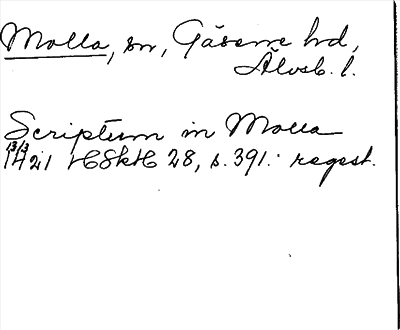 Molla, sn, Gäsene hd,
Älvsb. l.
Scriptum in Molla
13/3 1421 HSkH 28, s. 391. regest.